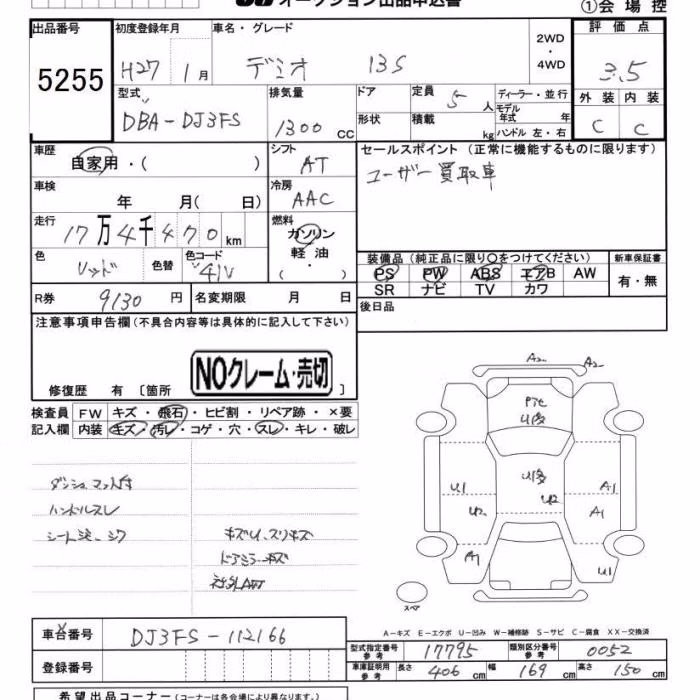 オークション出品申込書 ①会場控
出品番号 初度登録年月 車名・グレード 2WD・4WD 評価点
5255 H27 1月 デミオ 13S 3.5
型式 排気量 ドア 定員 ディーラー・並行 外装 内装
DBA-DJ3FS 1300cc 5人 モデル年式 年 C C
形状 積載 kg ハンドル 左・右
車歴 シフト セールスポイント(正常に機能するものに限ります)
自家用・( ) AT ユーザー買取車
車検 冷房
年 月( 日) AAC
走行 燃料
17万4千470km ガソリン・軽油・( )
色 色替 色コード 装備品(純正品に限り○をつけてください) 新車保証書
レッド 41V PS PW ABS エアB AW 有・無
SR ナビ TV カワ
R券 9130円 名変期限 月 日 後日品
注意事項申告欄(不具合内容等は具体的に記入して下さい)
NOクレーム・売切
修復歴 有〔箇所 〕
検査員 FW キズ・飛石・ヒビ割・リペア跡・×要
記入欄 内装 キズ・汚レ・コゲ・穴・スレ・キレ・破レ
ダッシュマット付
ハンドルスレ
キズU、スリキズ
ドアミラーキズ
A2 A2
U多
U多
U1 U2 A1
U2 A1
A1 U1
スペア
A-キズ E-エクボ U-凹み W-補修跡 S-サビ C-腐食 XX-交換済
車台番号 DJ3FS-112166
型式指定番号参考 17795 類別区分番号参考 0052
登録番号 車庫証明用参考 長さ 406cm 幅 169cm 高さ 150cm
希望出品コーナー(コーナーは各会場により異なります。)